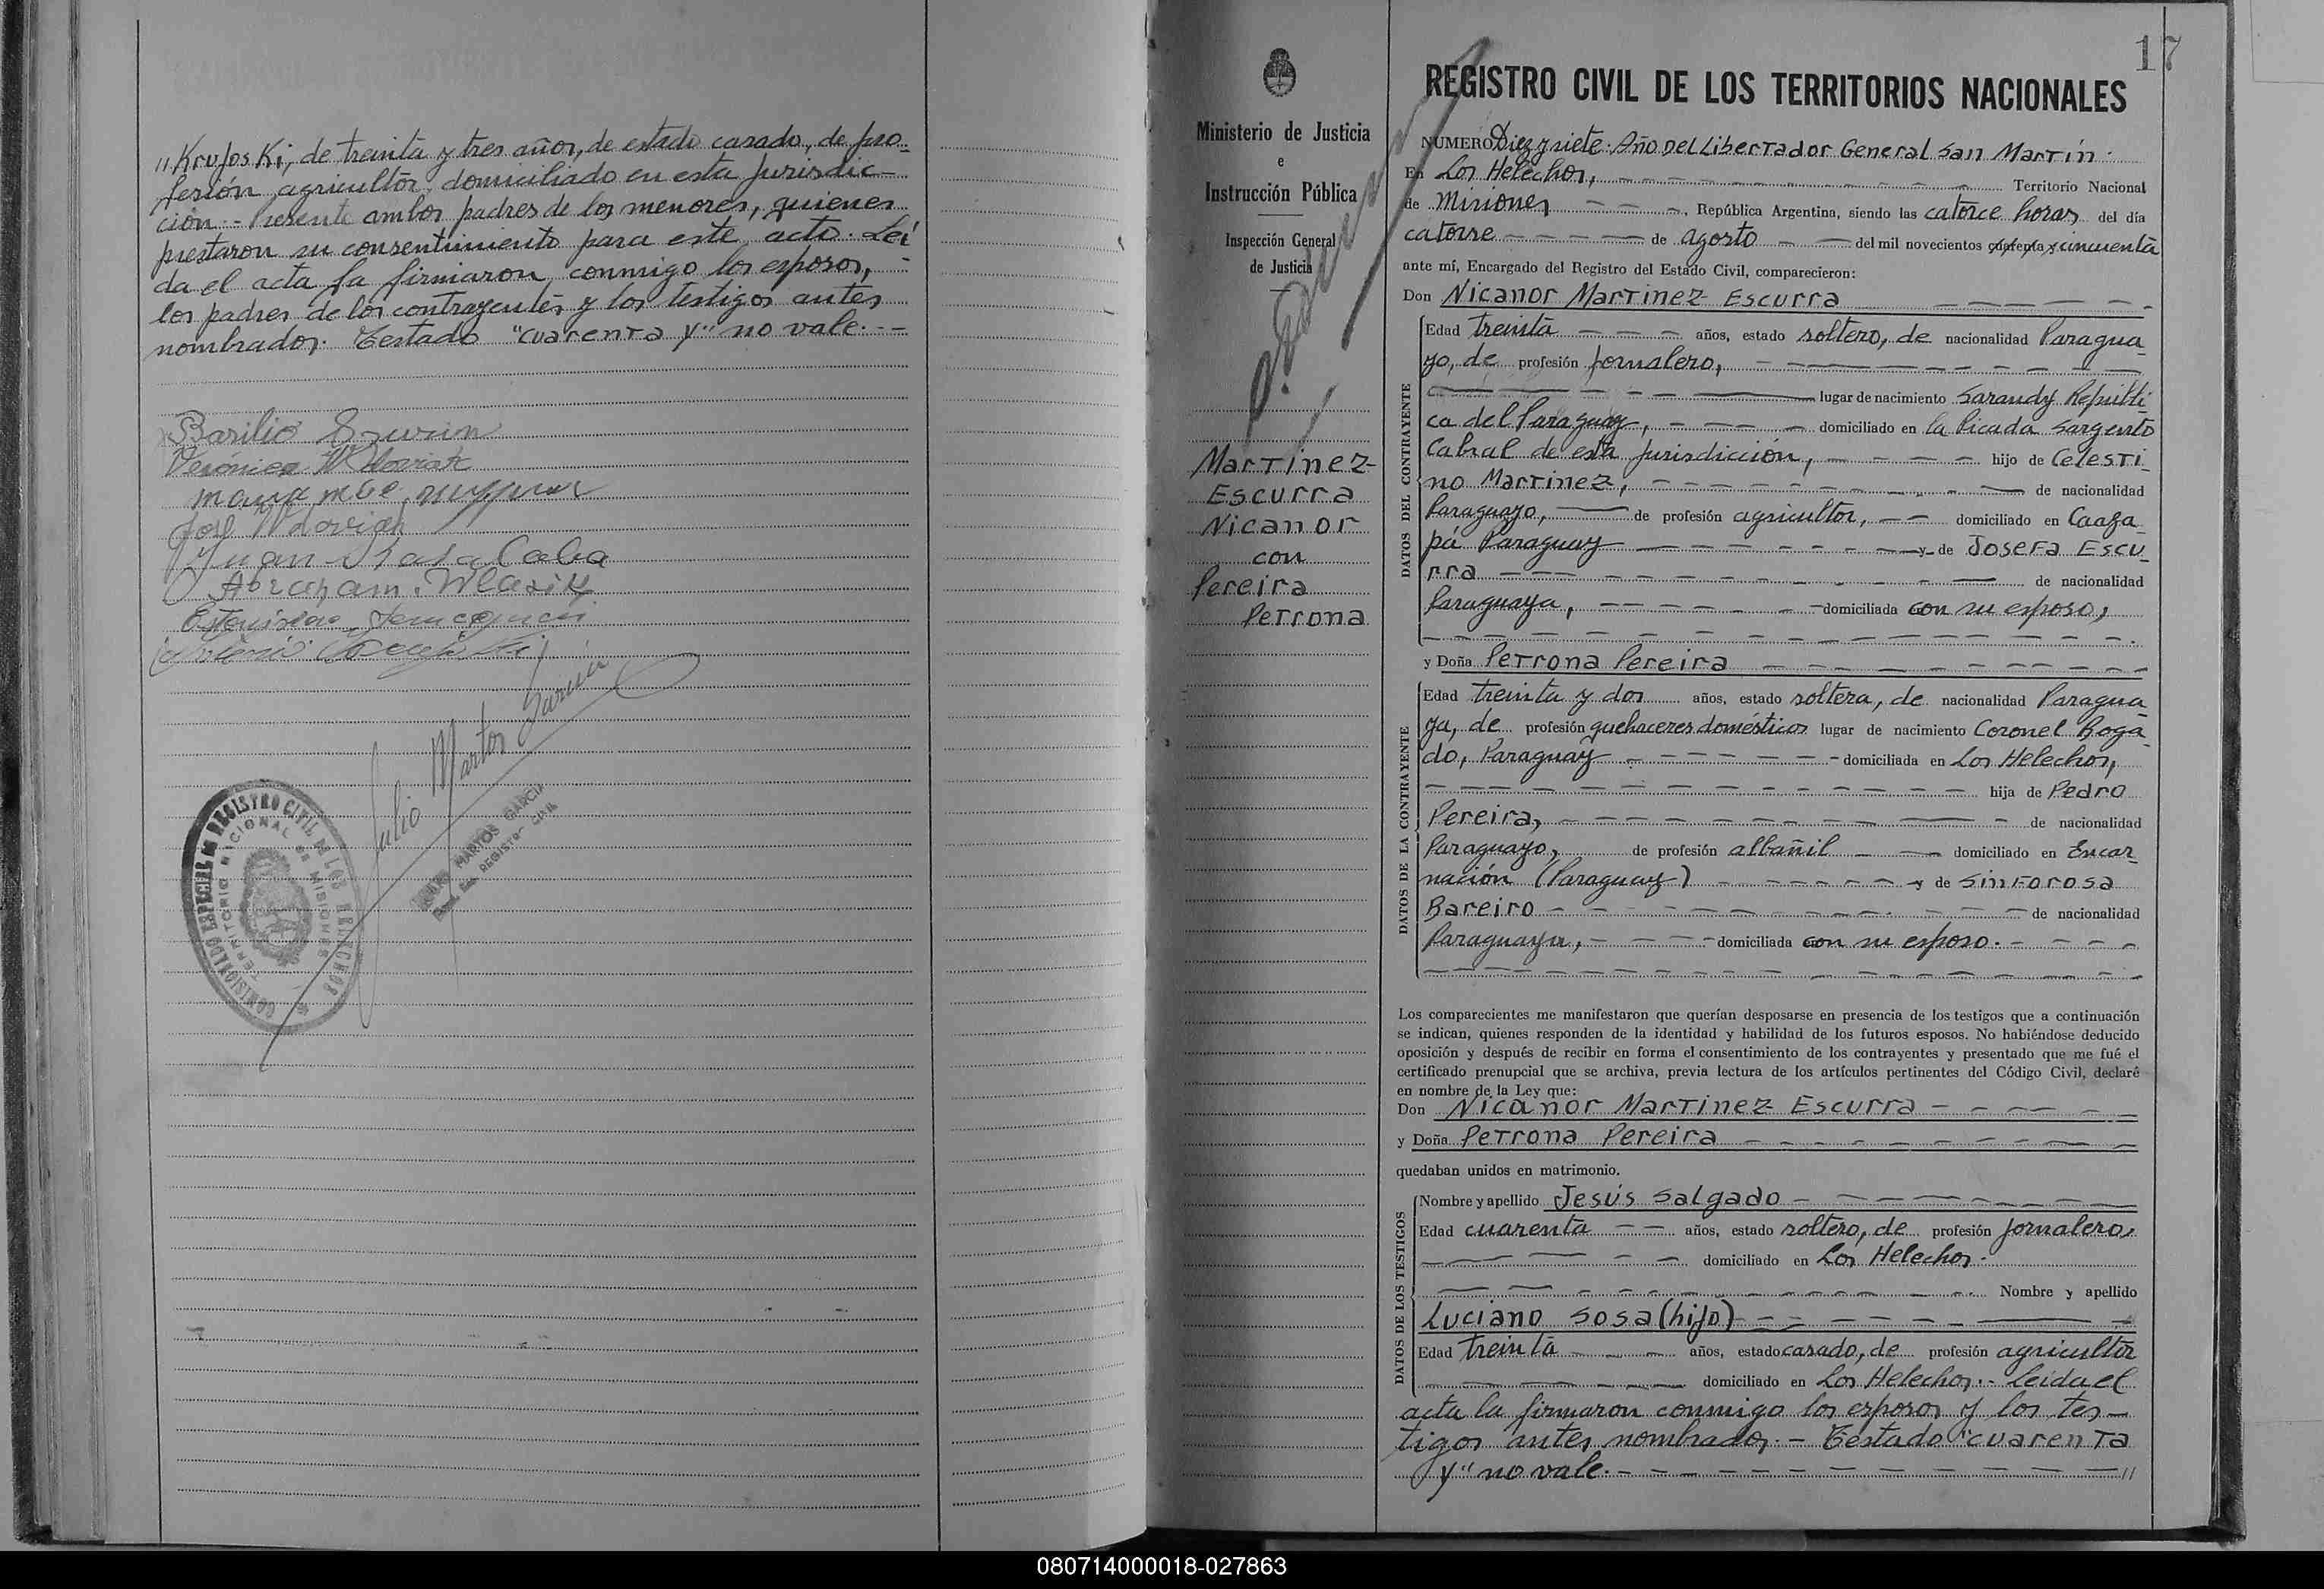 "Krujoski, de treinta y tres años, de estado casado, de pro-
fesión agricultor, domiciliado en esta jurisdic-
ción.- Presente ambos padres de los menores, quienes
prestaron su consentimiento para este acto. Leí-
da el acta la firmaron conmigo los esposos,-
los padres de los contrayentes y los testigos antes
nombrados. Testado "cuarenta y" no vale.--
Basilio
Verónica
José
Juan
Abraham
Julio Martos García
JULIO MARTOS GARCIA
REGISTRO CIVIL
COMISIONADO ESPECIAL DE REGISTRO CIVIL DE LOS HELECHOS
TERRITORIO NACIONAL DE MISIONES
17
Ministerio de Justicia
e
Instrucción Pública
Inspección General
de Justicia
Martínez-
Escurra
Nicanor
con
Pereira
Petrona
REGISTRO CIVIL DE LOS TERRITORIOS NACIONALES
NUMERO Diez y siete. Año del Libertador General San Martín.
En Los Helechos, Territorio Nacional
de Misiones República Argentina, siendo las catorce horas del día
catorse de agosto del mil novecientos cuarenta y cincuenta
ante mí, Encargado del Registro del Estado Civil, comparecieron:
Don Nicanor Martinez Escurra
DATOS DEL CONTRAYENTE
Edad treinta años, estado soltero, de nacionalidad Paragua-
yo, de profesión jornalero,
lugar de nacimiento Sarandy Republi-
ca del Paraguay, domiciliado en la Picada Sargento
Cabral de esta jurisdicción, hijo de Celesti-
no Martinez, de nacionalidad
Paraguayo, de profesión agricultor, domiciliado en Caaza-
pa Paraguay y de Josefa Escu-
rra de nacionalidad
Paraguaya, domiciliada con su esposo,
y Doña Petrona Pereira
DATOS DE LA CONTRAYENTE
Edad treinta y dos años, estado soltera, de nacionalidad Paragua-
ya, de profesión quehaceres domésticos lugar de nacimiento Coronel Boga-
do, Paraguay domiciliada en Los Helechos,
hija de Pedro
Pereira, de nacionalidad
Paraguayo, de profesión albañil domiciliado en Encar-
nación (Paraguay) y de Sinforosa
Bareiro de nacionalidad
Paraguaya, domiciliada con su esposo.
Los comparecientes me manifestaron que querían desposarse en presencia de los testigos que a continuación
se indican, quienes responden de la identidad y habilidad de los futuros esposos. No habiéndose deducido
oposición y después de recibir en forma el consentimiento de los contrayentes y presentado que me fué el
certificado prenupcial que se archiva, previa lectura de los artículos pertinentes del Código Civil, declaré
en nombre de la Ley que:
Don Nicanor Martinez Escurra
y Doña Petrona Pereira
quedaban unidos en matrimonio.
DATOS DE LOS TESTIGOS
Nombre y apellido Jesús Salgado
Edad cuarenta años, estado soltero, de profesión jornalero,
domiciliado en Los Helechos.
Nombre y apellido
Luciano Sosa (hijo)
Edad treinta años, estado casado, de profesión agricultor
domiciliado en Los Helechos.- Leida el
acta la firmaron conmigo los esposos y los tes-
tigos antes nombrados.- Testado "cuarenta
y" no vale.
080714000018-027863